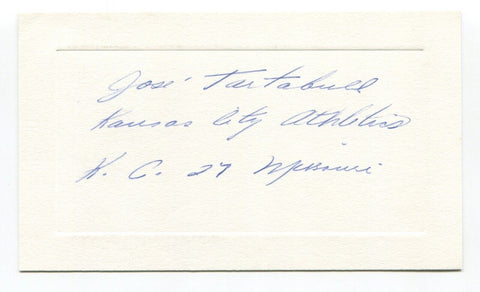 José Tartabull
Kansas City Athletics
K. C. 27 Missouri